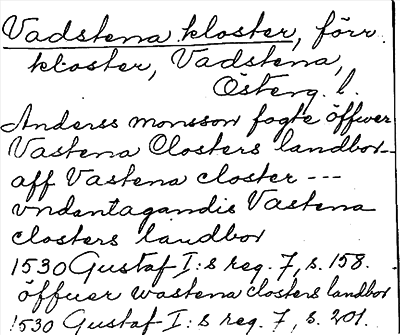 Vadstena kloster, förr.
kloster, Vadstena,
Österg. l.
Anderss monsson fogte öffwer
Vastena Closters landbor--
aff Vastena closter ---
vndantagandis Vastena
closters landbor
1530 Gustaf I:s reg. 7, s. 158.
öffuer wastena closters landbor
1530 Gustaf I:s reg. 7, s. 201.